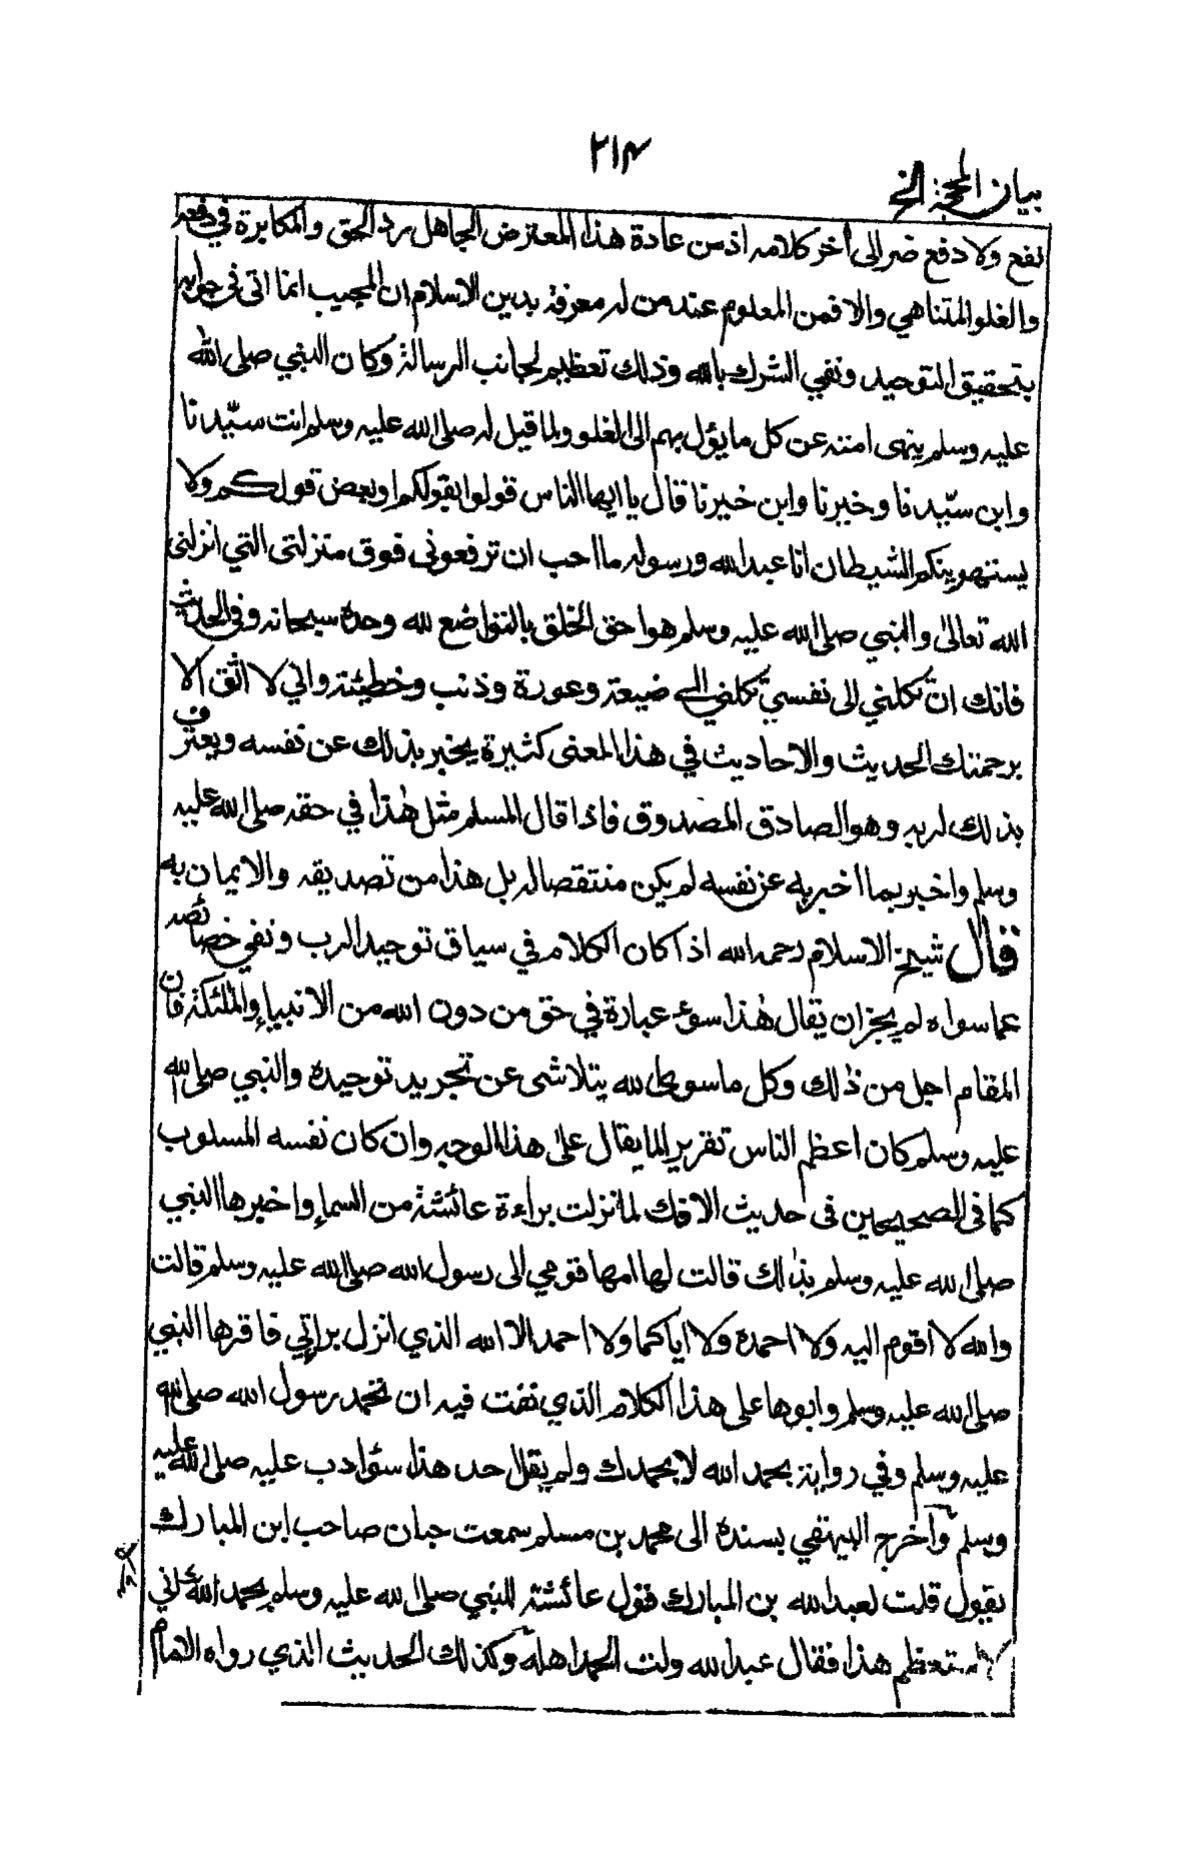 ٢١٤
بيان المحجة الخ
نفع ولا دفع ضر الى أخر كلامه اذ من عادة هذا المعترض الجاهل رد الحق والمكابرة في دفعه
والغلو المتناهي والا فمن المعلوم عند من له معرفة بدين الاسلام ان المجيب انما اتى في جوابه
بتحقيق التوحيد ونفي الشرك بالله وذلك تعظيم لجانب الرسالة وكان النبي صلى الله
عليه وسلم ينهى امته عن كل ما يؤل بهم الى الغلو ولما قيل له صلى الله عليه وسلم انت سيّدنا
وابن سيّدنا وخيرنا وابن خيرنا قال يا ايها الناس قولوا بقولكم او بعض قولكم ولا
يستهوينكم الشيطان انا عبد الله ورسوله ما احب ان ترفعونى فوق منزلتى التي انزلنى
الله تعالى والنبي صلى الله عليه وسلم هو احق الخلق بالتواضع لله وحده سبحانه وفي الحديث
فانك ان تكلني الى نفسي تكلني الى ضيعة وعورة وذنب وخطيئة واني لا اثق الا
برحمتك الحديث والاحاديث في هذا المعنى كثيرة يخبر بذلك عن نفسه ويعترف
بذلك لربه وهو الصادق المصدوق فاذا قال المسلم مثل هٰذا في حقه صلى الله عليه
وسلم واخبر بما اخبر به عن نفسه لم يكن منتقصا له بل هذا من تصديقه والايمان به
قال شيخ الاسلام رحمه الله اذا كان الكلام في سياق توحيد الرب ونفي خصائصه
عما سواه لم يجز ان يقال هٰذا سوء عبارة في حق من دون الله من الانبياء والملئكة فان
المقام اجل من ذٰلك وكل ما سوى الله يتلاشى عن تجريد توحيده والنبي صلى الله
عليه وسلم كان اعظم الناس تقريرا لما يقال على هذا الوجه وان كان نفسه المسلوب
كما فى الصحيحين فى حديث الافك لما نزلت براءة عائشة من السماء واخبرها النبي
صلى الله عليه وسلم بذٰلك قالت لها امها قومي الى رسول الله صلى الله عليه وسلم قالت
والله لا اقوم اليه ولا احمده ولا اياكما ولا احمد الا الله الذي انزل براتي فاقرها النبي
صلى الله عليه وسلم وابوها على هذا الكلام الذي نفت فيه ان تحمد رسول الله صلى الله
عليه وسلم وفي رواية بحمد الله لا بحمدك ولم يقل احد هذا سؤادب عليه صلى الله عليه
وسلم وأخرج البيهقي بسنده الى محمد بن مسلم سمعت حبان صاحب ابن المبارك
يقول قلت لعبد الله بن المبارك قول عائشة للنبي صلى الله عليه وسلم بحمد الله اني
لاستعظم هذا فقال عبد الله ولت الحمد اهله وكذلك الحديث الذي رواه الامام